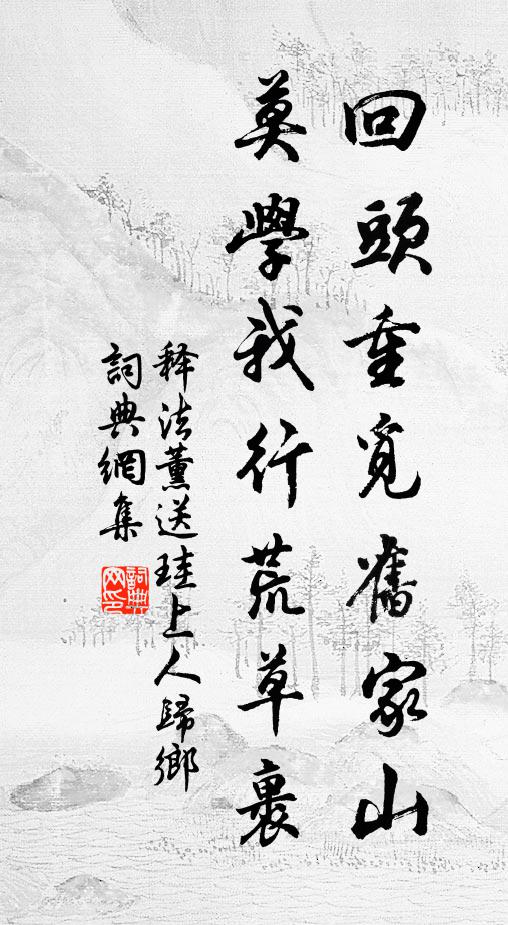 回頭重覓舊家山
莫學我行荒草裹
释法薰送珪上人歸鄉
詞典網集
詞典網印